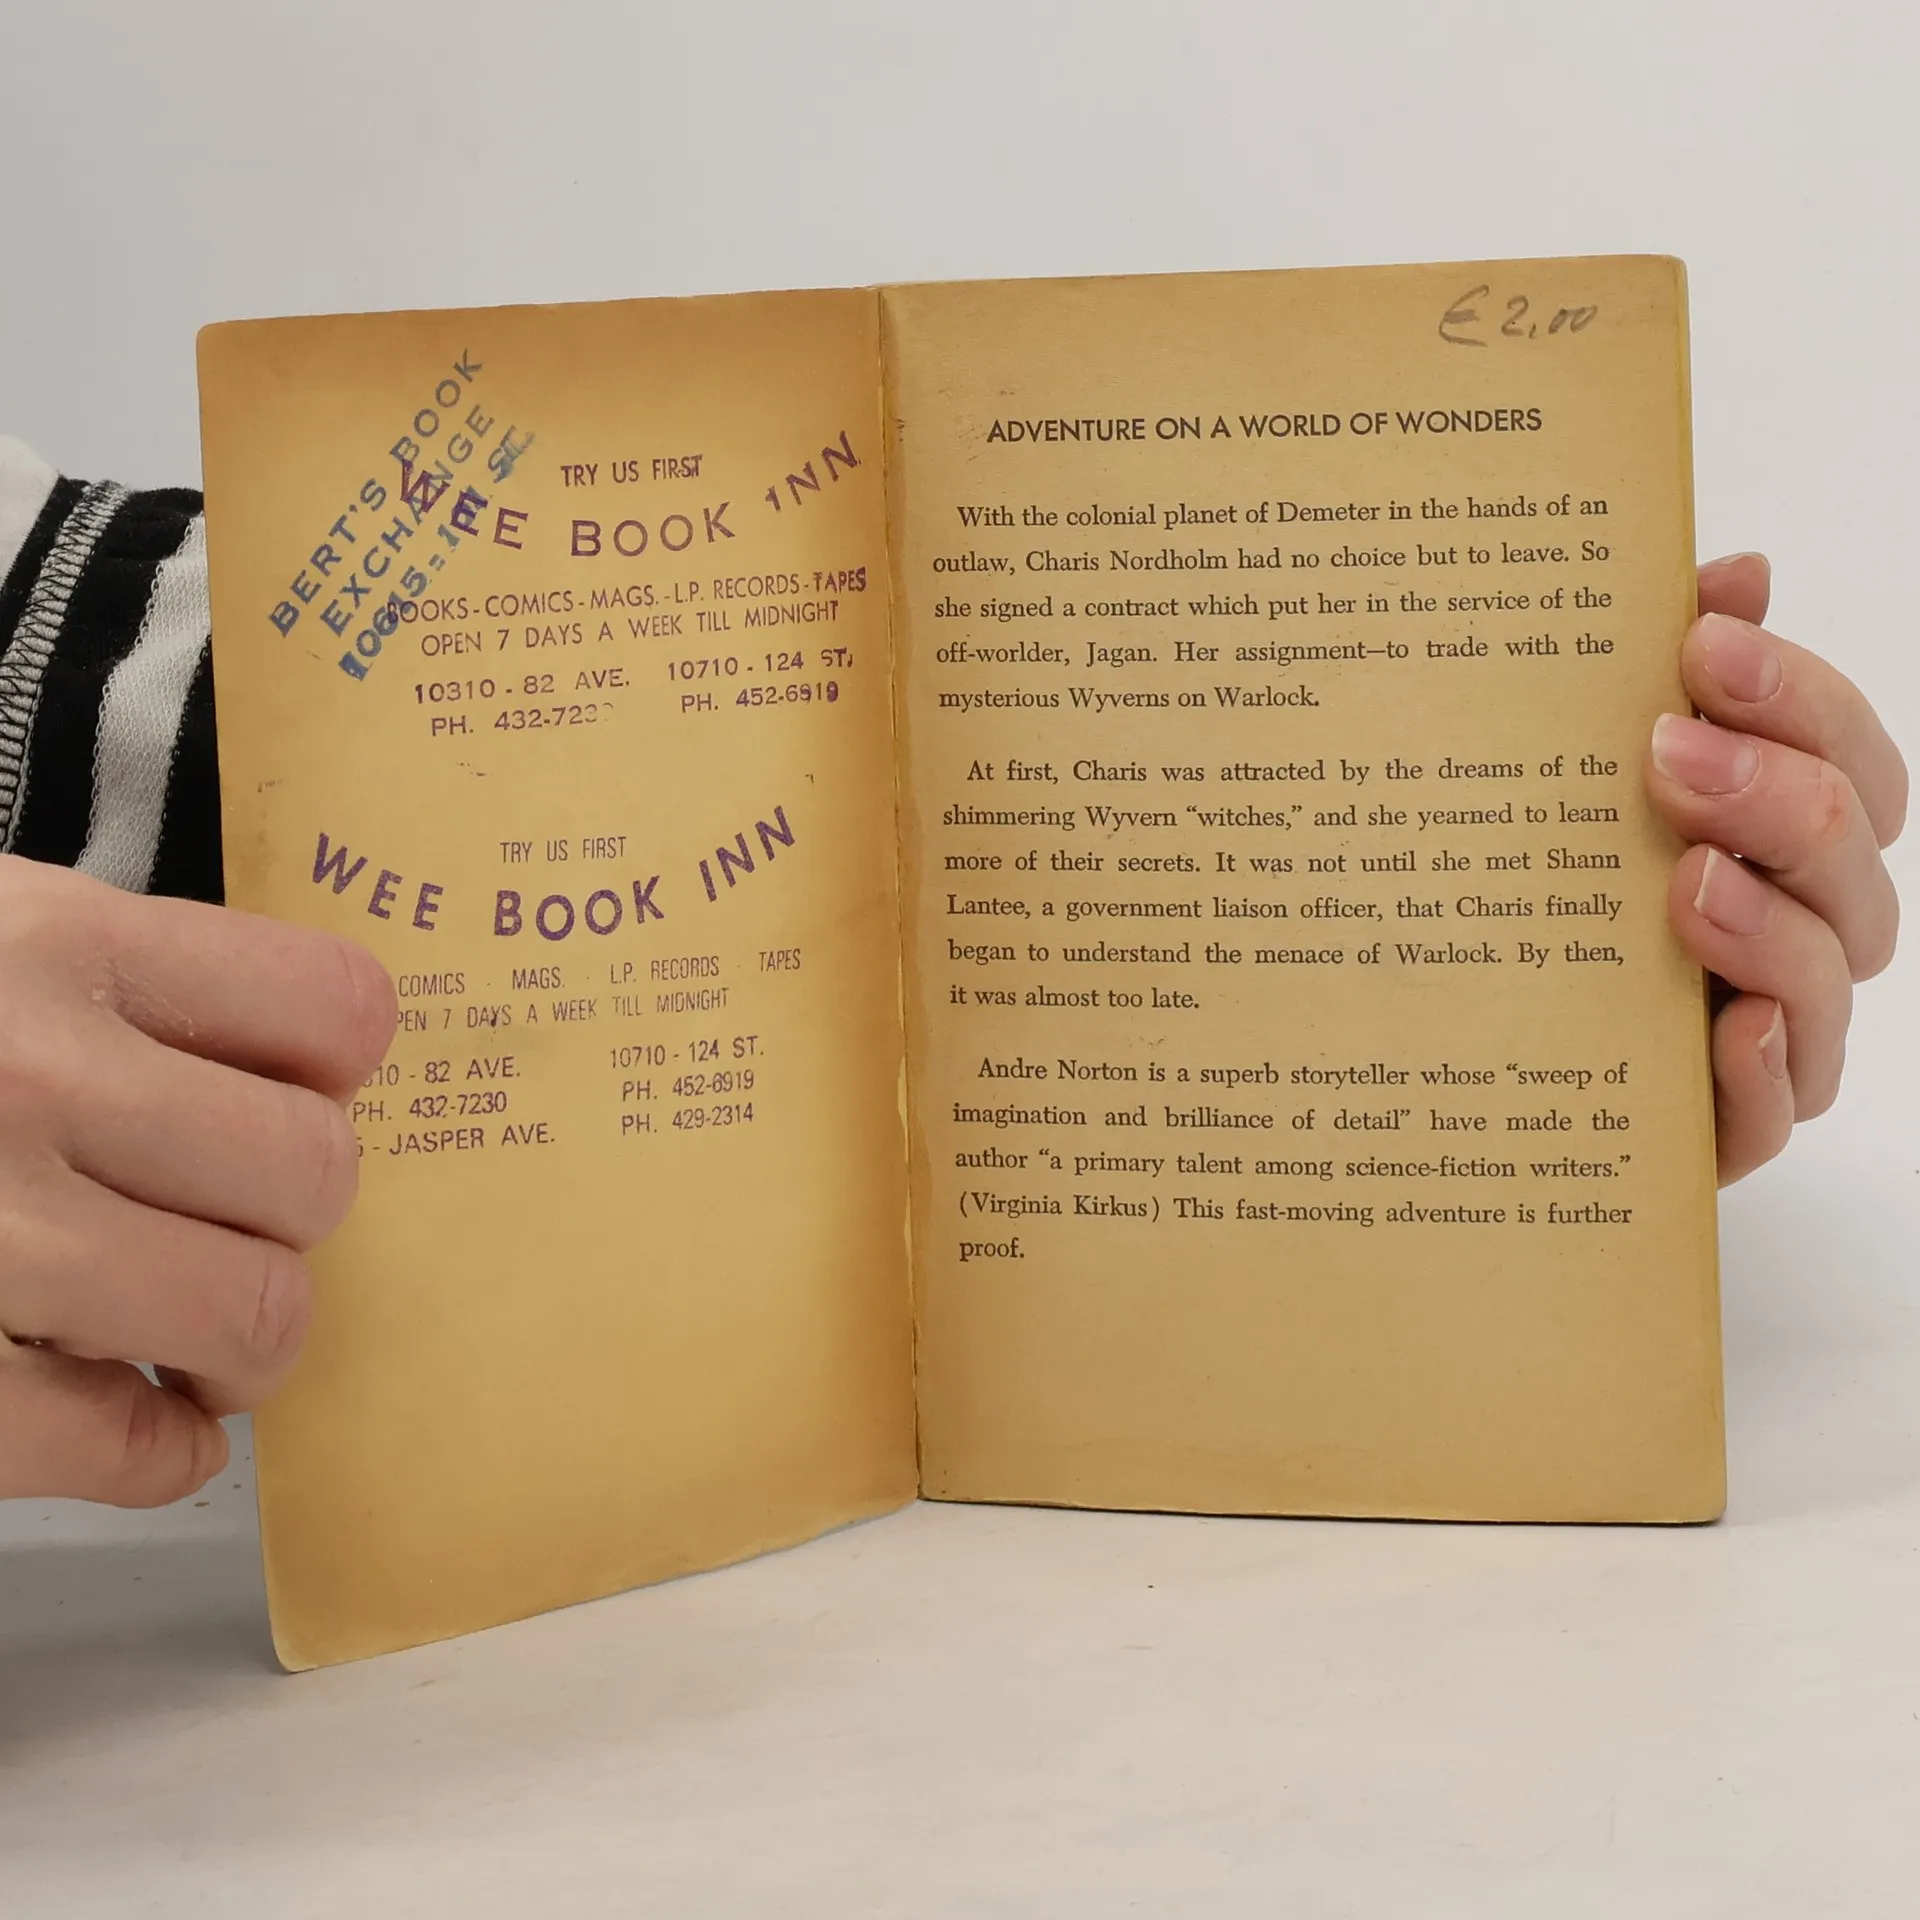 BERT'S BOOK
EXCHANGE
TRY US FIRST
WEE BOOK INN
BOOKS - COMICS - MAGS. - L.P. RECORDS - TAPES
OPEN 7 DAYS A WEEK TILL MIDNIGHT
10310 - 82 AVE. 10710 - 124 ST.
PH. PH. 452-6919
TRY US FIRST
WEE BOOK INN
COMICS - MAGS. - L.P. RECORDS - TAPES
7 DAYS A WEEK TILL MIDNIGHT
- 82 AVE. 10710 - 124 ST.
PH. 432-7230 PH. 452-6919
- JASPER AVE. PH. 429-2314
€ 2,00
ADVENTURE ON A WORLD OF WONDERS
With the colonial planet of Demeter in the hands of an
outlaw, Charis Nordholm had no choice but to leave. So
she signed a contract which put her in the service of the
off-worlder, Jagan. Her assignment—to trade with the
mysterious Wyverns on Warlock.
At first, Charis was attracted by the dreams of the
shimmering Wyvern “witches,” and she yearned to learn
more of their secrets. It was not until she met Shann
Lantee, a government liaison officer, that Charis finally
began to understand the menace of Warlock. By then,
it was almost too late.
Andre Norton is a superb storyteller whose “sweep of
imagination and brilliance of detail” have made the
author “a primary talent among science-fiction writers.”
(Virginia Kirkus) This fast-moving adventure is further
proof.